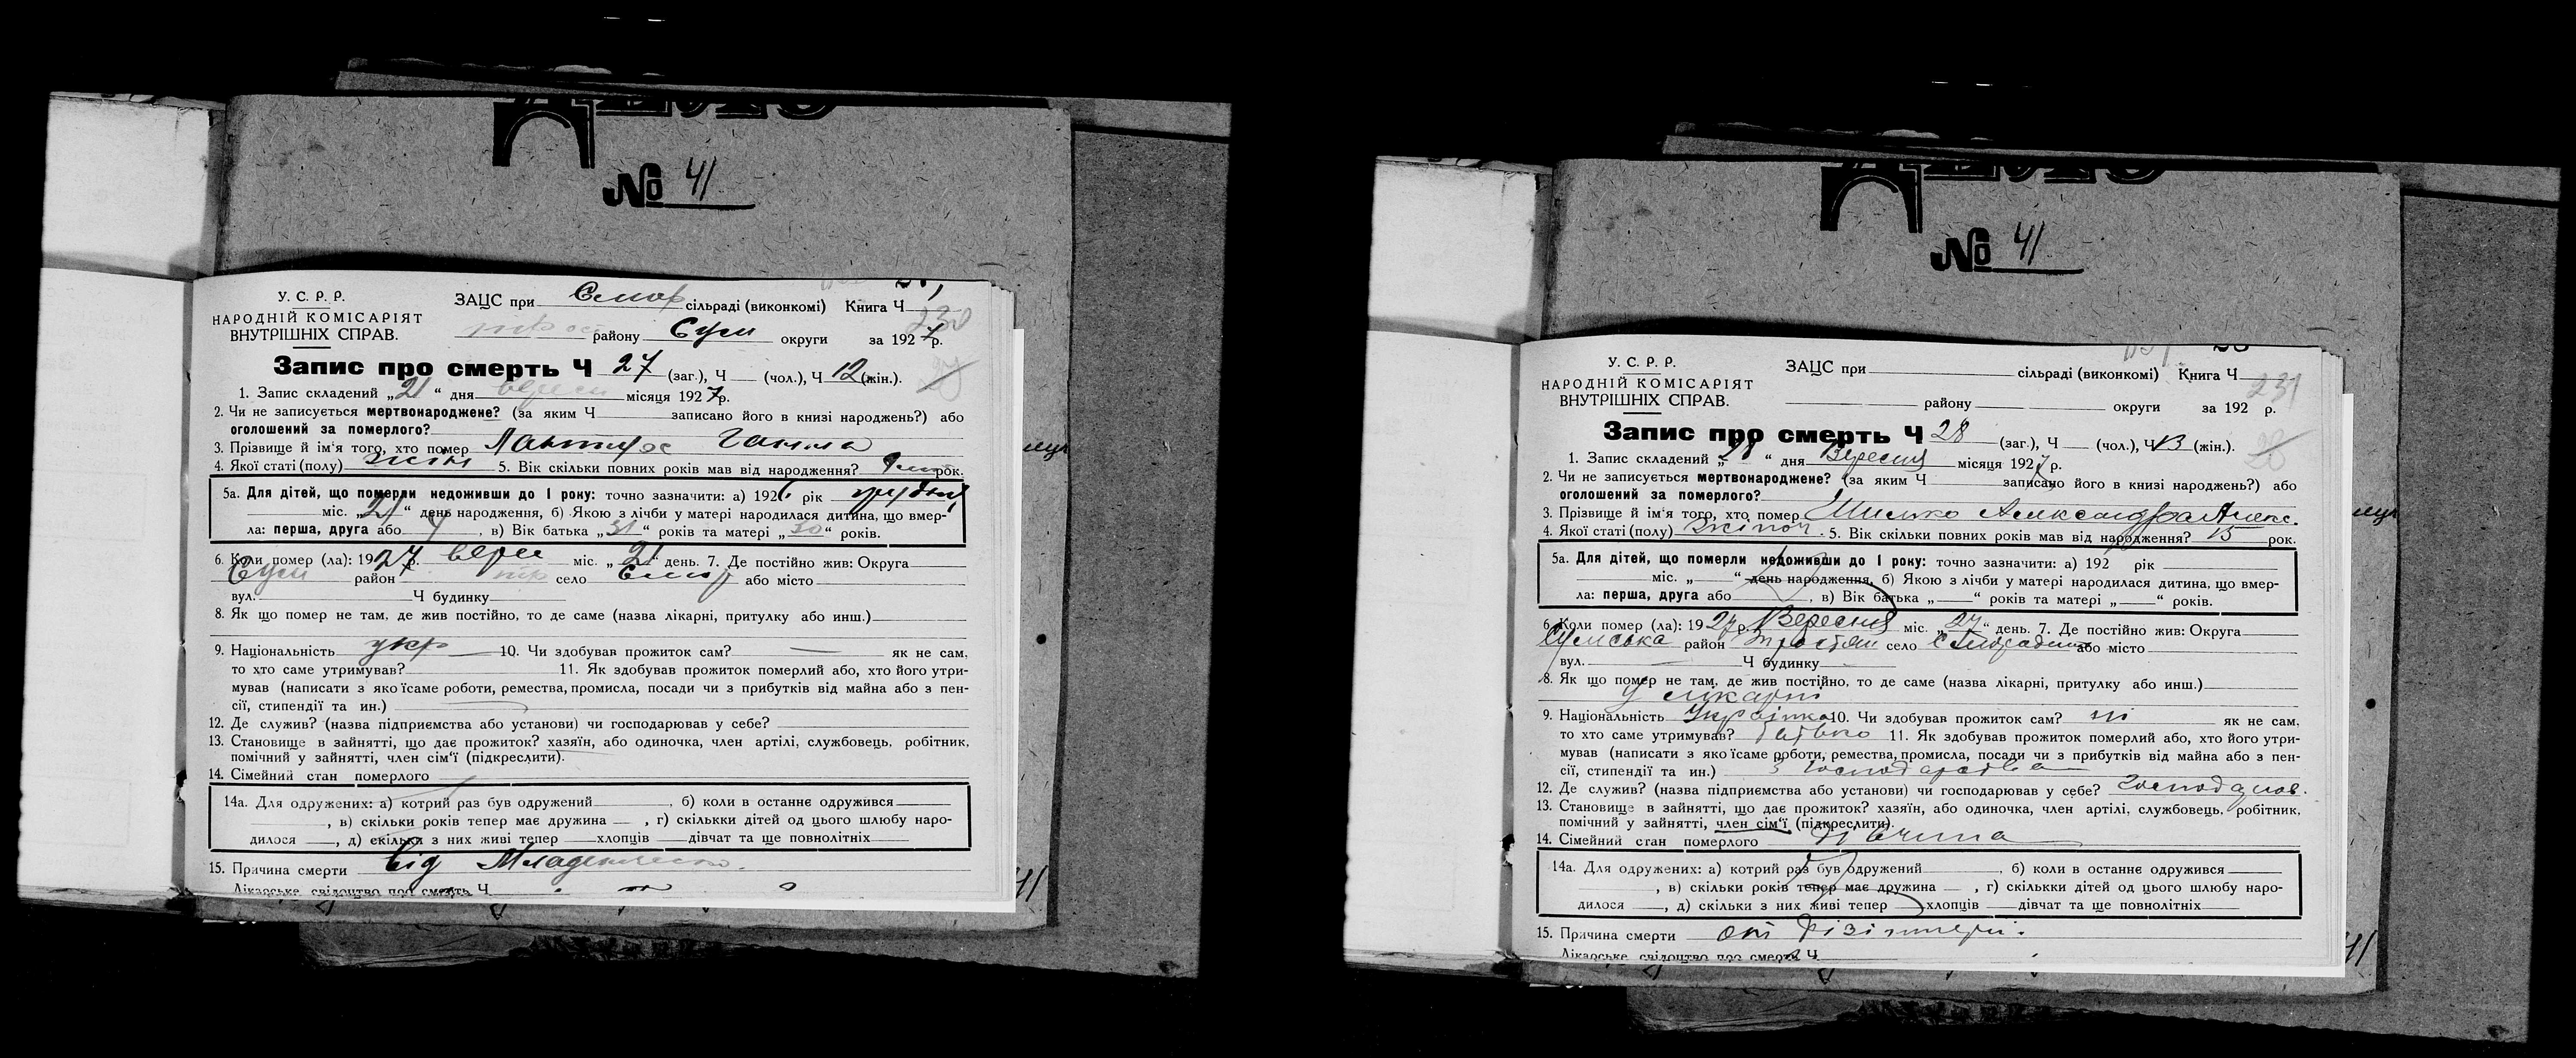 № 41
У. С. Р. Р.
НАРОДНІЙ КОМІСАРІЯТ
ВНУТРІШНІХ СПРАВ.
ЗАЦС при Смор сільраді (виконкомі) Книга Ч
району Сум округи за 1927 р.
230
Запис про смерть Ч 27 (заг.), Ч (чол.), Ч 12 (жін.).
1. Запис складений „21“ дня верес місяця 1927 р.
2. Чи не записується мертвонароджене? (за яким Ч записано його в книзі народжень?) або
оголошений за померлого?
3. Прізвище й ім‘я того, хто помер Ганна
4. Якої статі (полу) жін 5. Вік скільки повних років мав від народження? рок.
5а. Для дітей, що померли недоживши до 1 року: точно зазначити: а) 1926 рік грудня
міс. „21“ день народження, б) Якою з лічби у матері народилася дитина, що вмер-
ла: перша, друга або 4, в) Вік батька „31“ років та матері „30“ років.
6. Коли помер (ла): 1927 р. верес міс. „21“ день. 7. Де постійно жив: Округа
Сум район тр село Смор або місто
вул. Ч будинку
8. Як що помер не там, де жив постійно, то де саме (назва лікарні, притулку або инш.)
9. Національність укр 10. Чи здобував прожиток сам? — як не сам,
то хто саме утримував? 11. Як здобував прожиток померлий або, хто його утри-
мував (написати з якоїсаме роботи, ремества, промисла, посади чи з прибутків від майна або з пен-
сії, стипендії та ин.)
12. Де служив? (назва підприємства або установи) чи господарював у себе?
13. Становище в зайнятті, що дає прожиток? хазяїн, або одиночка, член артілі, службовець, робітник,
помічний у зайнятті, член сім‘ї (підкреслити).
14. Сімейний стан померлого
14а. Для одружених: а) котрий раз був одружений, б) коли в останнє одружився
, в) скільки років тепер має дружина , г) скількки дітей од цього шлюбу наро-
дилося , д) скільки з них живі тепер хлопців дівчат та ще повнолітніх
15. Причина смерти від
Лікарське свідоцтво про смерть Ч
№ 41
У. С. Р. Р.
НАРОДНІЙ КОМІСАРІЯТ
ВНУТРІШНІХ СПРАВ.
ЗАЦС при сільраді (виконкомі) Книга Ч
району округи за 192 р.
231
Запис про смерть Ч 28 (заг.), Ч (чол.), Ч 13 (жін.).
28
1. Запис складений „28“ дня Вересня місяця 1927 р.
2. Чи не записується мертвонароджене? (за яким Ч записано його в книзі народжень?) або
оголошений за померлого?
3. Прізвище й ім‘я того, хто помер Александра Алекс.
4. Якої статі (полу) жіноч. 5. Вік скільки повних років мав від народження? 15 рок.
5а. Для дітей, що померли недоживши до 1 року: точно зазначити: а) 192 рік
міс. „ “ день народження, б) Якою з лічби у матері народилася дитина, що вмер-
ла: перша, друга або , в) Вік батька „ “ років та матері „ “ років.
6. Коли помер (ла): 1927 р. Вересня міс. „27“ день. 7. Де постійно жив: Округа
Сумська район Тростян село або місто
вул. Ч будинку
8. Як що помер не там, де жив постійно, то де саме (назва лікарні, притулку або инш.)
у лікарні
9. Національність Українка 10. Чи здобував прожиток сам? ні як не сам,
то хто саме утримував? батько 11. Як здобував прожиток померлий або, хто його утри-
мував (написати з якоїсаме роботи, ремества, промисла, посади чи з прибутків від майна або з пен-
сії, стипендії та ин.) З господарства
12. Де служив? (назва підприємства або установи) чи господарював у себе?
13. Становище в зайнятті, що дає прожиток? хазяїн, або одиночка, член артілі, службовець, робітник,
помічний у зайнятті, член сім‘ї (підкреслити).
14. Сімейний стан померлого дівчина
14а. Для одружених: а) котрий раз був одружений, б) коли в останнє одружився
, в) скільки років тепер має дружина , г) скількки дітей од цього шлюбу наро-
дилося , д) скільки з них живі тепер хлопців дівчат та ще повнолітніх
15. Причина смерти
Лікарське свідоцтво про смерть Ч